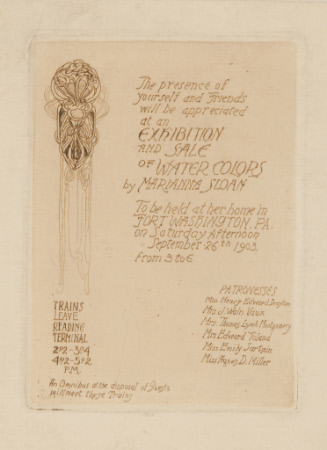 The presence of
yourself and Friends
will be appreciated
at an
EXHIBITION
AND SALE
OF WATER COLORS
by MARIANNA SLOAN
To be held at her home in
FORT WASHINGTON, PA.
on Saturday Afternoon
September 26th 1903.
from 3 to 6
TRAINS
LEAVE
READING
TERMINAL
202 - 304
402 - 502
P.M.
An Omnibus at the disposal of Guests
will meet these Trains
PATRONESSES
Mrs. Henry Edward Drayton
Mrs. J. Waln Vaux
Mrs. Thomas Lynch Montgomery
Mrs. Edward Toland
Miss Emily Sartain
Miss Agnes D. Miller